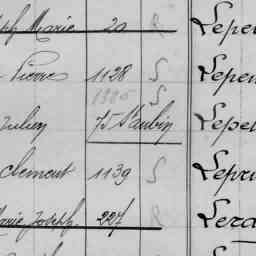 ph Marie 20 R Lepe
Pierre 1128 S Lepen
1986 S
Julien 75 St aubin Lepel
Clement 1139 S Lepri
Marie Joseph 227 R Lera